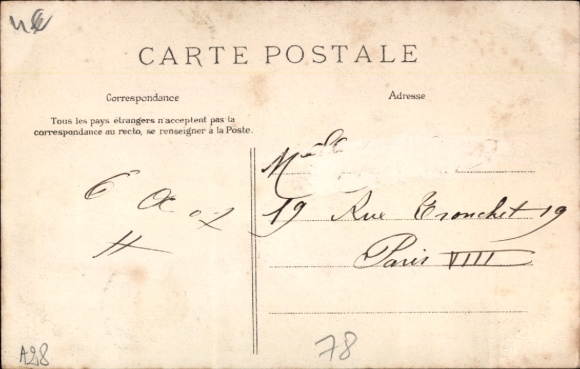 CARTE POSTALE
Correspondance
Adresse
Tous les pays étrangers n'acceptent pas la
correspondance au recto, se renseigner à la Poste.
Melle
19 Rue Tronchet 19
Paris VIII
A28
78